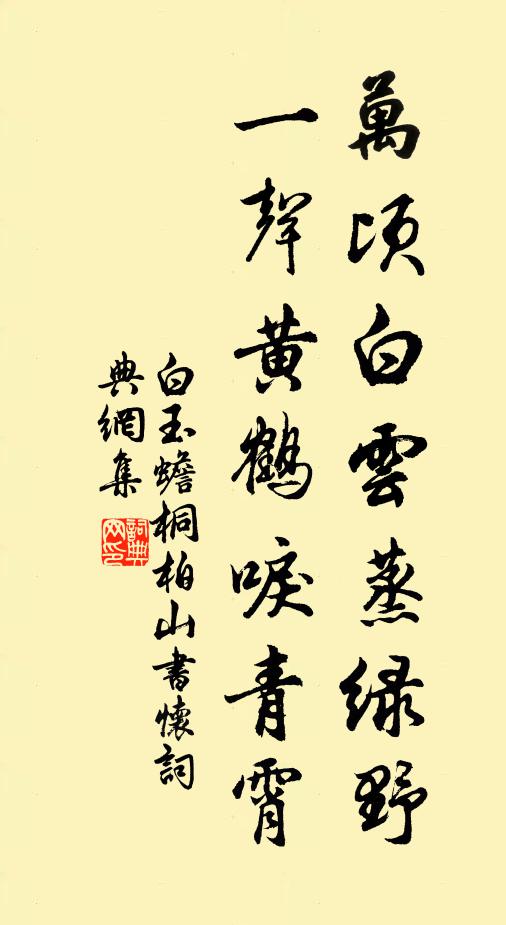 萬頃白雲蒸綠野
一聲黃鶴唳青霄
白玉蟾桐柏山書懷詞
典網集
詞典網印